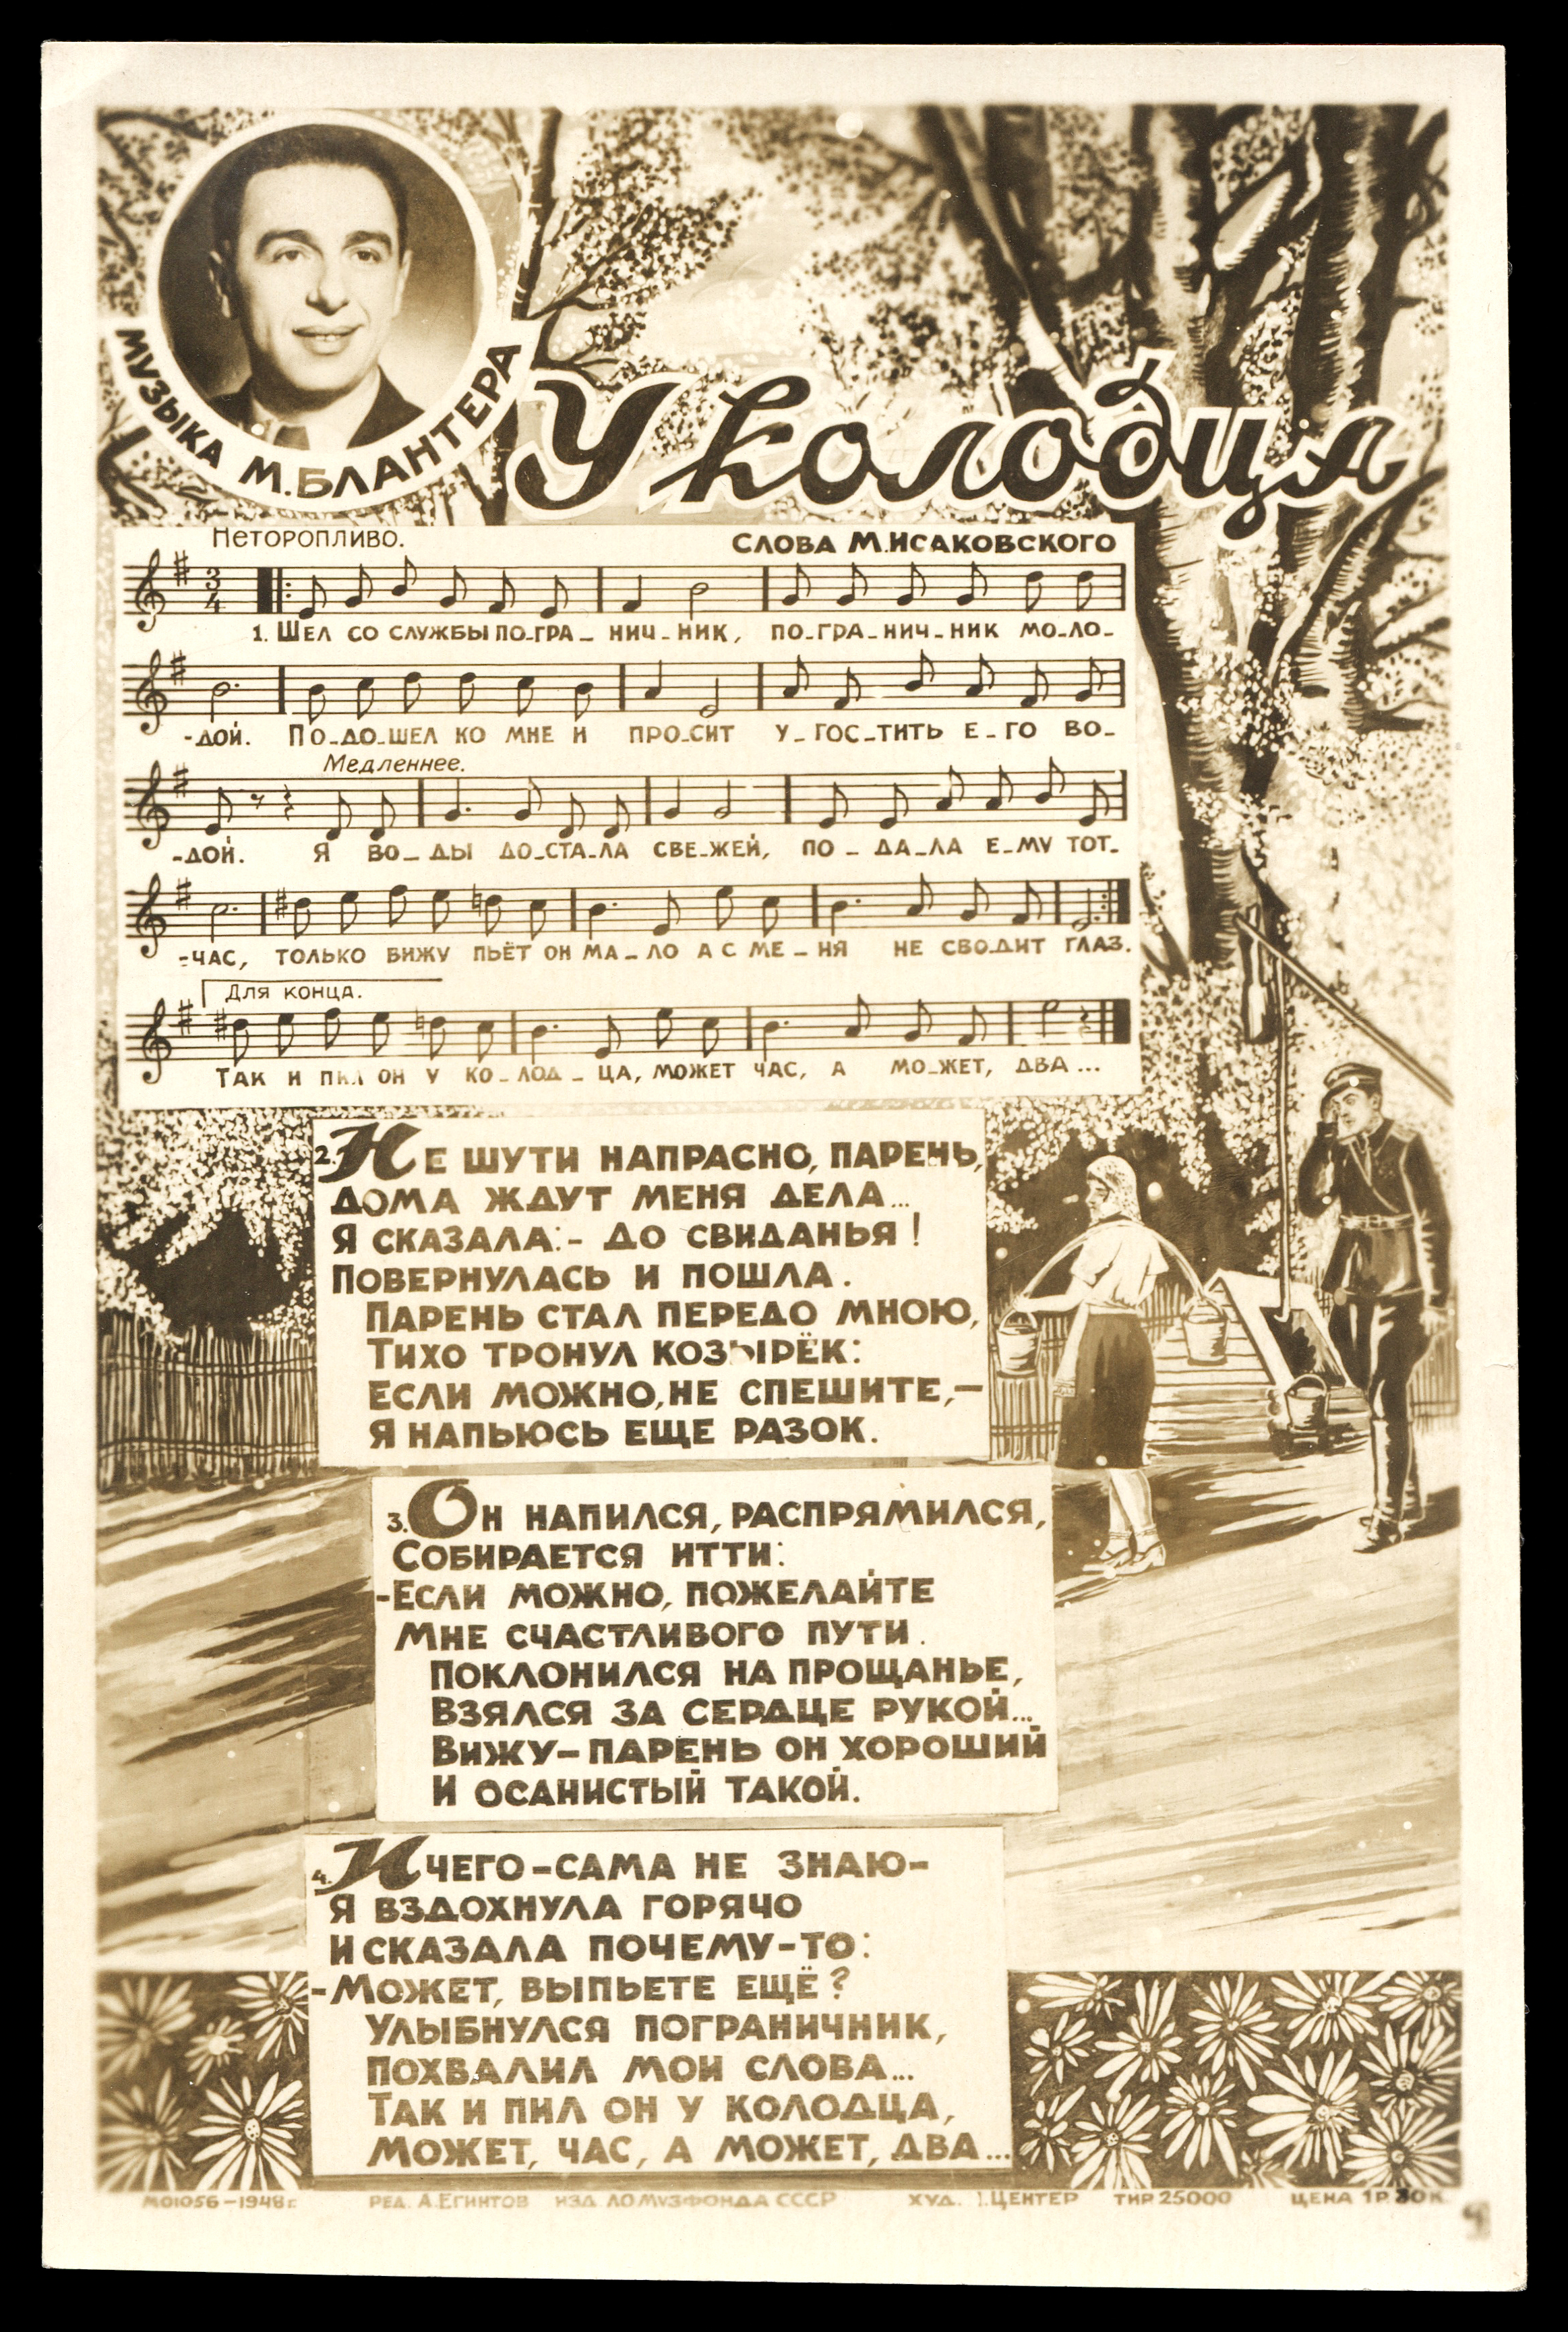 МУЗЫКА М.БЛАНТЕРА
У колодца
Неторопливо.
СЛОВА М.ИСАКОВСКОГО
3
4
1. ШЕЛ СО СЛУЖБЫ ПО-ГРА- НИЧ-НИК, ПО-ГРА-НИЧ-НИК МО-ЛО-
-ДОЙ. ПО-ДО-ШЕЛ КО МНЕ И ПРО-СИТ У-ГОС-ТИТЬ Е-ГО ВО-
Медленнее.
-ДОЙ. Я ВО- ДЫ ДО-СТА-ЛА СВЕ-ЖЕЙ, ПО- ДА-ЛА Е-МУ ТОТ-
-ЧАС, ТОЛЬКО ВИЖУ ПЬЁТ ОН МА-ЛО А С МЕ-НЯ НЕ СВО-ДИТ ГЛАЗ.
Для конца.
ТАК И ПИЛ ОН У КО-ЛОД-ЦА, МОЖЕТ ЧАС, А МО-ЖЕТ, ДВА...
2. НЕ ШУТИ НАПРАСНО, ПАРЕНЬ,
ДОМА ЖДУТ МЕНЯ ДЕЛА...
Я СКАЗАЛА:- ДО СВИДАНЬЯ!
ПОВЕРНУЛАСЬ И ПОШЛА.
ПАРЕНЬ СТАЛ ПЕРЕДО МНОЮ,
ТИХО ТРОНУЛ КОЗЫРЁК:
ЕСЛИ МОЖНО, НЕ СПЕШИТЕ,-
Я НАПЬЮСЬ ЕЩЕ РАЗОК.
3. ОН НАПИЛСЯ, РАСПРЯМИЛСЯ,
СОБИРАЕТСЯ ИТТИ:
-ЕСЛИ МОЖНО, ПОЖЕЛАЙТЕ
МНЕ СЧАСТЛИВОГО ПУТИ.
ПОКЛОНИЛСЯ НА ПРОЩАНЬЕ,
ВЗЯЛСЯ ЗА СЕРДЦЕ РУКОЙ...
ВИЖУ-ПАРЕНЬ ОН ХОРОШИЙ
И ОСАНИСТЫЙ ТАКОЙ.
4. И ЧЕГО-САМА НЕ ЗНАЮ-
Я ВЗДОХНУЛА ГОРЯЧО
И СКАЗАЛА ПОЧЕМУ-ТО:
-МОЖЕТ, ВЫПЬЕТЕ ЕЩЁ?
УЛЫБНУЛСЯ ПОГРАНИЧНИК,
ПОХВАЛИЛ МОИ СЛОВА...
ТАК И ПИЛ ОН У КОЛОДЦА,
МОЖЕТ, ЧАС, А МОЖЕТ, ДВА...
МО1056-1948г. РЕД. А.ЕГИНТОВ ИЗД ЛО МУЗФОНДА СССР ХУД. ЦЕНТЕР ТИР 25000 ЦЕНА 1Р.